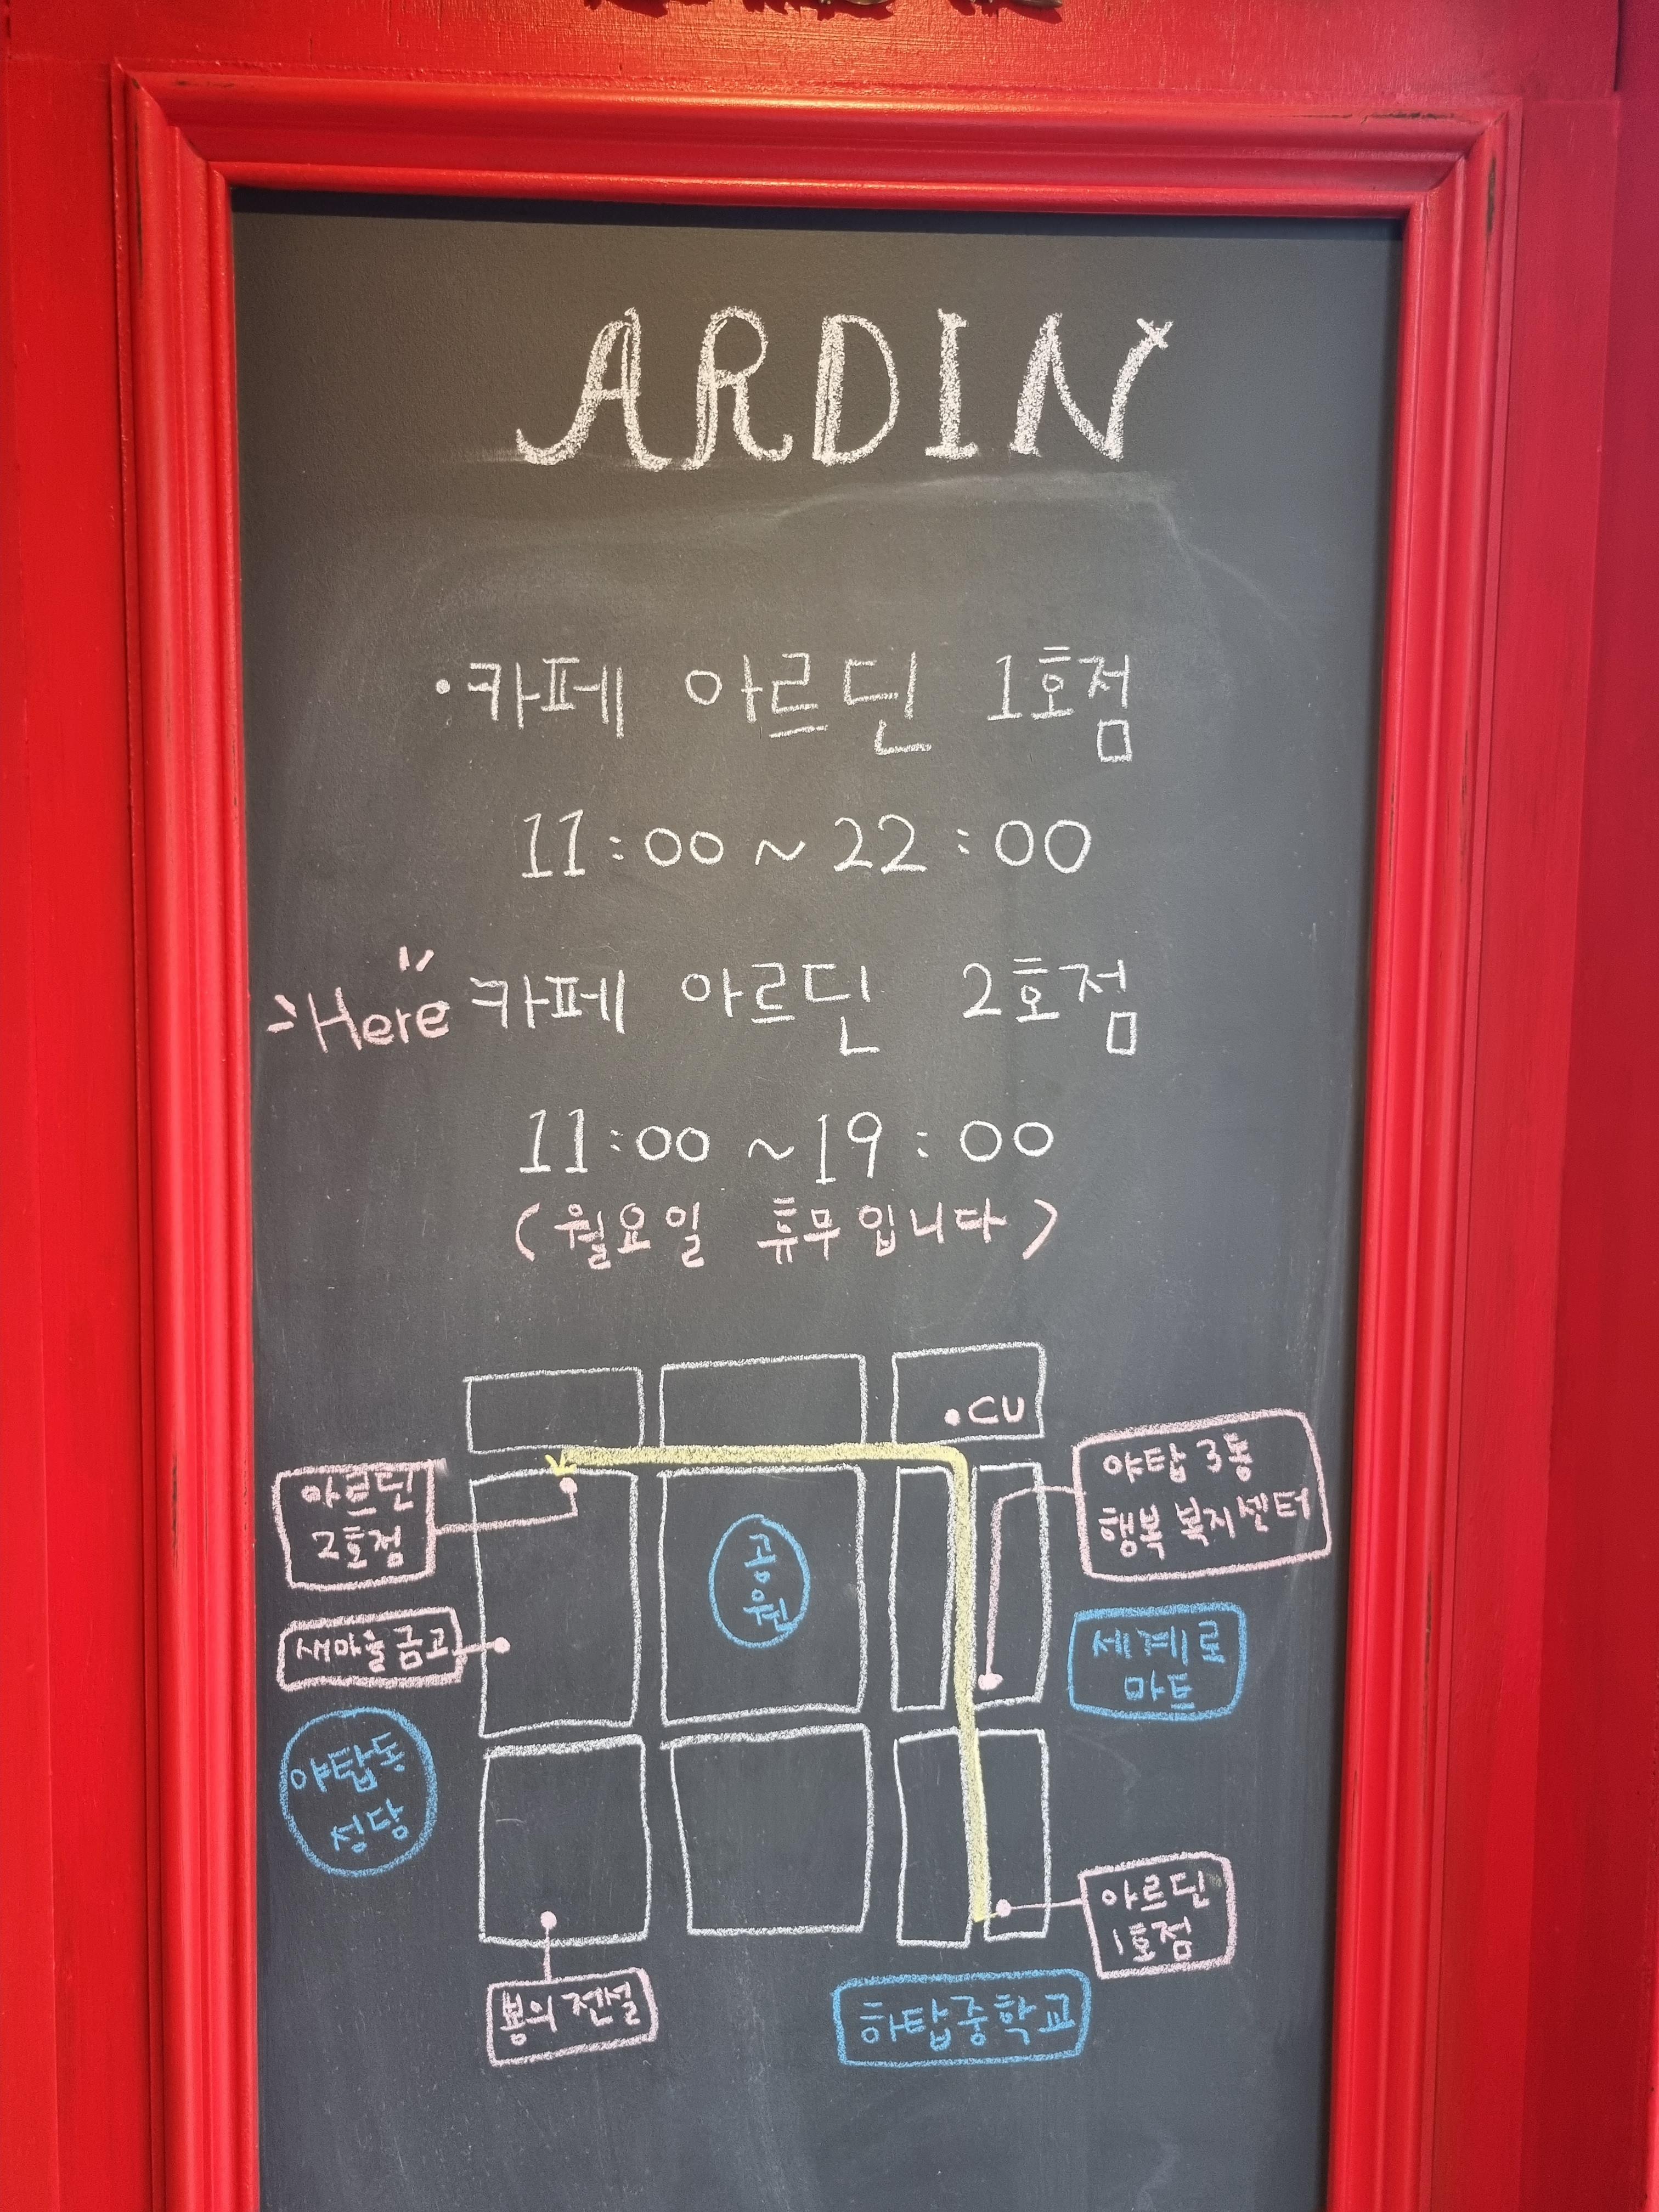 ARDIN
·카페 아르딘 1호점
11:00~22:00
Here 카페 아르딘 2호점
11:00~19:00
(월요일 휴무입니다)
·CU
아르딘
2호점
야탑3동
행복복지센터
공
원
새마을금고
세계로
마트
야탑동
성당
아르딘
1호점
뽕의전설
하탑중학교